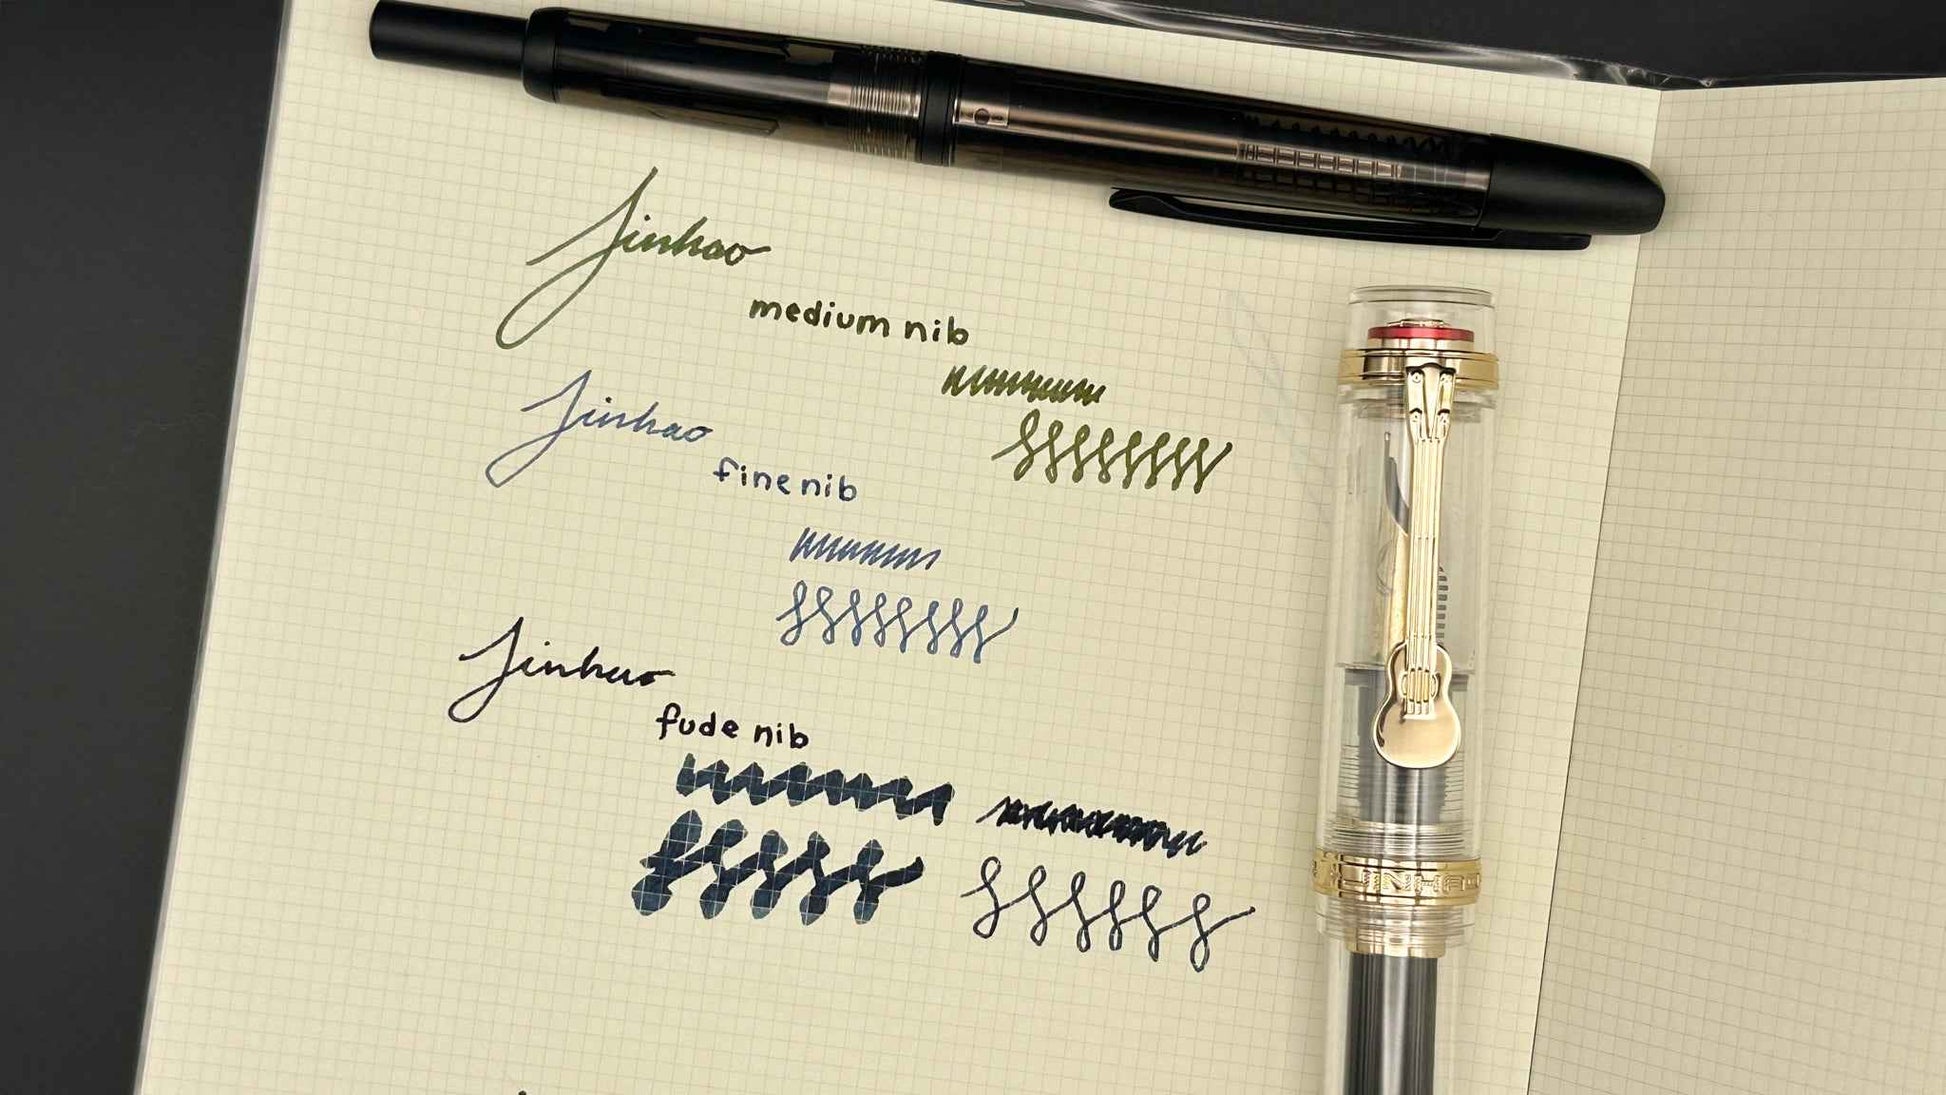 Jinhao
medium nib
Jinhao
fine nib
Jinhao
fude nib
JINHAO